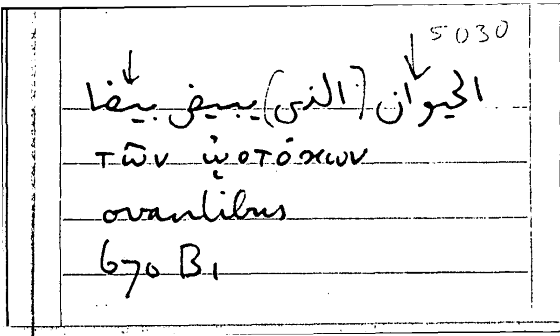 5030
الحيوان (الذى) يبيض بيضا
τῶν ᾠοτόκων
ovantibus
670 B1